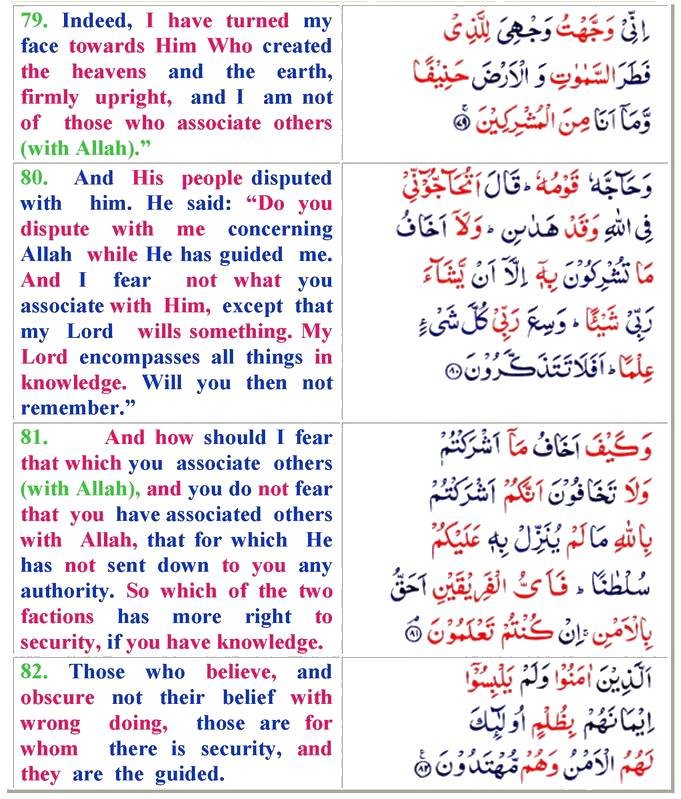 79. Indeed, I have turned my
face towards Him Who created
the heavens and the earth,
firmly upright, and I am not
of those who associate others
(with Allah).”
اِنِّیْ وَجَّهْتُ وَجْهِیَ لِلَّذِیْ
فَطَرَ السَّمٰوٰتِ وَ الْاَرْضَ حَنِیْفًا
وَّمَاۤ اَنَا مِنَ الْمُشْرِکِیْنَ ۷۹
80. And His people disputed
with him. He said: “Do you
dispute with me concerning
Allah while He has guided me.
And I fear not what you
associate with Him, except that
my Lord wills something. My
Lord encompasses all things in
knowledge. Will you then not
remember.”
وَحَآجَّهٗ قَوْمُهٗ ؕ قَالَ اَتُحَآجُّوْٓنِّیْ
فِی اللّٰهِ وَقَدْ هَدٰىنِ ؕ وَلَاۤ اَخَافُ
مَا تُشْرِکُوْنَ بِهٖۤ اِلَّاۤ اَنْ یَّشَآءَ
رَبِّیْ شَیْـًٔا ؕ وَسِعَ رَبِّیْ کُلَّ شَیْءٍ
عِلْمًا ؕ اَفَلَا تَتَذَکَّرُوْنَ ۸۰
81. And how should I fear
that which you associate others
(with Allah), and you do not fear
that you have associated others
with Allah, that for which He
has not sent down to you any
authority. So which of the two
factions has more right to
security, if you have knowledge.
وَکَیْفَ اَخَافُ مَاۤ اَشْرَکْتُمْ
وَلَا تَخَافُوْنَ اَنَّکُمْ اَشْرَکْتُمْ
بِاللّٰهِ مَا لَمْ یُنَزِّلْ بِهٖ عَلَیْکُمْ
سُلْطٰنًا ؕ فَاَیُّ الْفَرِیْقَیْنِ اَحَقُّ
بِالْاَمْنِ ۚ اِنْ کُنْتُمْ تَعْلَمُوْنَ ۘ۸۱
82. Those who believe, and
obscure not their belief with
wrong doing, those are for
whom there is security, and
they are the guided.
اَلَّذِیْنَ اٰمَنُوْا وَلَمْ یَلْبِسُوْۤا
اِیْمَانَهُمْ بِظُلْمٍ اُولٰٓئِکَ
لَهُمُ الْاَمْنُ وَهُمْ مُّهْتَدُوْنَ ۸۲